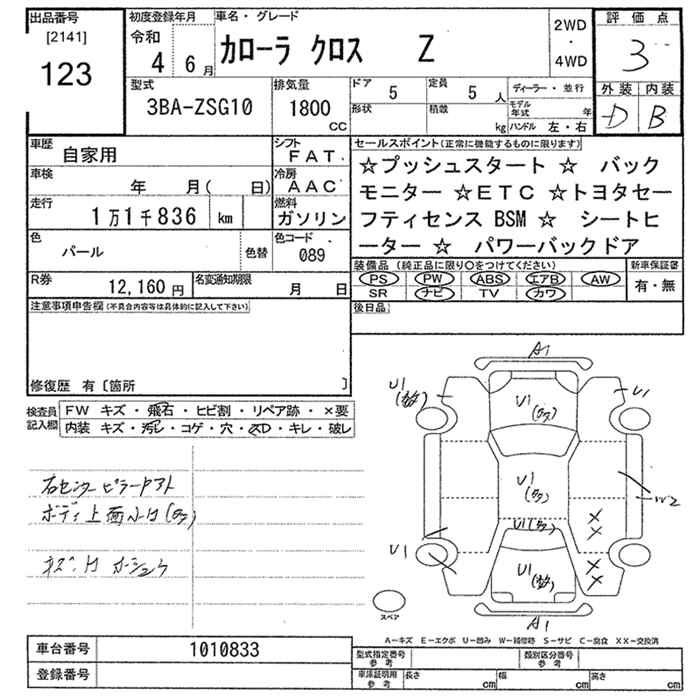 出品番号
[2141]
123
初度登録年月
令和
4 6月
車名・グレード
カローラ クロス Z
2WD
・
4WD
評価点
3
外装 内装
D B
型式
3BA-ZSG10
排気量
1800
CC
ドア 5
定員 5人
形状
積載 kg
ディーラー・並行
モデル年式 年
ハンドル 左・右
車歴 自家用
シフト FAT
車検 年 月( 日)
冷房 AAC
走行 1万1千836 km
燃料 ガソリン
色 パール
色替
色コード 089
R券 12,160円
名変通知期限 月 日
セールスポイント(正常に機能するものに限ります)
☆プッシュスタート ☆ バック
モニター ☆ETC ☆トヨタセー
フティセンス BSM ☆ シートヒ
ーター ☆ パワーバックドア
装備品 (純正品に限り○をつけてください)
PS PW ABS エアB AW
SR ナビ TV カワ
新車保証書
有・無
後日品
注意事項申告欄(不具合内容等は具体的に記入して下さい)
修復歴 有〔箇所 〕
検査員記入欄
FW キズ・飛石・ヒビ割・リペア跡・×要
内装 キズ・汚レ・コゲ・穴・スD・キレ・破レ
右センターピラーヤアト
ボディ上面小U(多)
A1
U1
(多)
U1
(多)
U1
U1
(多)
W2
U1(多)
×
×
U1
U1
(多)
×
×
A1
スペア
A-キズ E-エクボ U-凹み W-補修跡 S-サビ C-腐食 XX-交換済
車台番号 1010833
登録番号
型式指定番号
参考
類別区分番号
参考
車庫証明用
参考
長さ cm
幅 cm
高さ cm